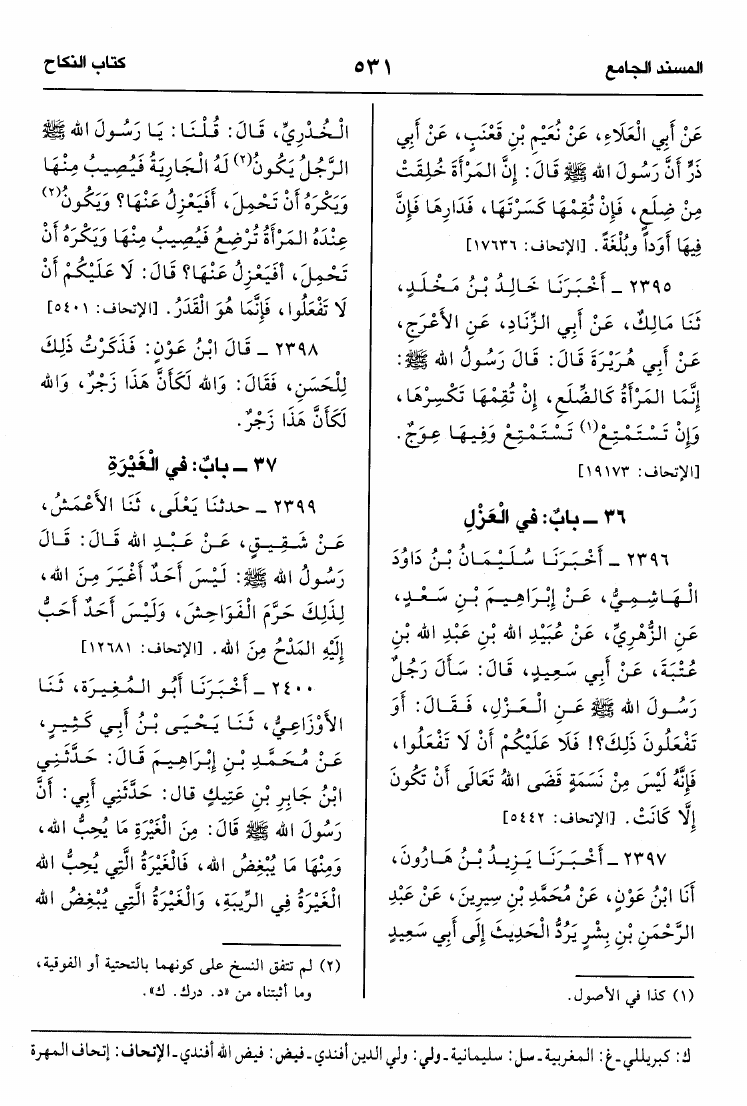 المسند الجامع
٥٣١
كتاب النكاح
عَنْ أَبِي الْعَلَاءِ، عَنْ نُعَيْمِ بْنِ قَعْنَبٍ، عَنْ أَبِي
ذَرٍّ أَنَّ رَسُولَ الله ﷺ قَالَ: إِنَّ المَرْأَةَ خُلِقَتْ
مِنْ ضِلَعٍ، فَإِنْ تُقِمْهَا كَسَرْتَهَا، فَدَارِهَا فَإِنَّ
فِيهَا أَوَداً وبُلْغَةً. [الإتحاف: ١٧٦٣٦]
٢٣٩٥ ـ أَخْبَرَنَا خَالِدُ بْنُ مَخْلَدٍ،
ثَنَا مَالِكٌ، عَنْ أَبِي الزِّنَادِ، عَنِ الأَعْرَجِ،
عَنْ أَبِي هُرَيْرَةَ قَالَ: قَالَ رَسُولُ الله ﷺ:
إِنَّمَا المَرْأَةُ كَالضِّلَعِ، إِنْ تُقِمْهَا تَكْسِرْهَا،
وَإِنْ تَسْتَمْتِعْ(١) تَسْتَمْتِعْ وَفِيهَا عِوَجٌ.
[الإتحاف: ١٩١٧٣]
٣٦ ـ بابٌ: في الْعَزْلِ
٢٣٩٦ ـ أَخْبَرَنَا سُلَيْمَانُ بْنُ دَاوُدَ
الْهَاشِمِيُّ، عَنْ إِبْرَاهِيمَ بْنِ سَعْدٍ،
عَنِ الزُّهْرِيِّ، عَنْ عُبَيْدِ الله بْنِ عَبْدِ الله بْنِ
عُتْبَةَ، عَنْ أَبِي سَعِيدٍ، قَالَ: سَأَلَ رَجُلٌ
رَسُولَ الله ﷺ عَنِ الْعَزْلِ، فَقَالَ: أَوَ
تَفْعَلُونَ ذَلِكَ؟! فَلَا عَلَيْكُمْ أَنْ لَا تَفْعَلُوا،
فَإِنَّهُ لَيْسَ مِنْ نَسَمَةٍ قَضَى اللهُ تَعَالَى أَنْ تَكُونَ
إِلَّا كَانَتْ. [الإتحاف: ٥٤٤٢]
٢٣٩٧ ـ أَخْبَرَنَا يَزِيدُ بْنُ هَارُونَ،
أَنَا ابْنُ عَوْنٍ، عَنْ مُحَمَّدِ بْنِ سِيرِينَ، عَنْ عَبْدِ
الرَّحْمَنِ بْنِ بِشْرٍ يَرُدُّ الْحَدِيثَ إِلَى أَبِي سَعِيدٍ
(١) كذا في الأصول.
الْخُدْرِيِّ، قَالَ: قُلْنَا: يَا رَسُولَ الله ﷺ
الرَّجُلُ يَكُونُ(٢) لَهُ الْجَارِيَةُ فَيُصِيبُ مِنْهَا
وَيَكْرَهُ أَنْ تَحْمِلَ، أَفَيَعْزِلُ عَنْهَا؟ وَيَكُونُ(٢)
عِنْدَهُ المَرْأَةُ تُرْضِعُ فَيُصِيبُ مِنْهَا وَيَكْرَهُ أَنْ
تَحْمِلَ، أَفَيَعْزِلُ عَنْهَا؟ قَالَ: لَا عَلَيْكُمْ أَنْ
لَا تَفْعَلُوا، فَإِنَّمَا هُوَ الْقَدَرُ. [الإتحاف: ٥٤٠١]
٢٣٩٨ ـ قَالَ ابْنُ عَوْنٍ: فَذَكَرْتُ ذَلِكَ
لِلْحَسَنِ، فَقَالَ: وَالله لَكَأَنَّ هَذَا زَجْرٌ، وَالله
لَكَأَنَّ هَذَا زَجْرٌ.
٣٧ ـ بابٌ: في الْغَيْرَةِ
٢٣٩٩ ـ حدثنَا يَعْلَى، ثَنَا الأَعْمَشُ،
عَنْ شَقِيقٍ، عَنْ عَبْدِ الله قَالَ: قَالَ
رَسُولُ الله ﷺ: لَيْسَ أَحَدٌ أَغْيَرَ مِنَ الله،
لِذَلِكَ حَرَّمَ الْفَوَاحِشَ، وَلَيْسَ أَحَدٌ أَحَبُّ
إِلَيْهِ المَدْحُ مِنَ الله. [الإتحاف: ١٢٦٨١]
٢٤٠٠ ـ أَخْبَرَنَا أَبُو المُغِيرَة، ثَنَا
الأَوْزَاعِيُّ، ثَنَا يَحْيَى بْنُ أَبِي كَثِيرٍ،
عَنْ مُحَمَّدِ بْنِ إِبْرَاهِيمَ قَالَ: حَدَّثَنِي
ابْنُ جَابِرِ بْنِ عَتِيكٍ قال: حَدَّثَنِي أَبِي: أَنَّ
رَسُولَ الله ﷺ قَالَ: مِنَ الْغَيْرَةِ مَا يُحِبُّ الله،
وَمِنْهَا مَا يُبْغِضُ الله، فَالْغَيْرَةُ الَّتِي يُحِبُّ الله
الْغَيْرَةُ فِي الرِّيبَةِ، وَالْغَيْرَةُ الَّتِي يُبْغِضُ الله
(٢) لم تتفق النسخ على كونهما بالتحتية أو الفوقية،
وما أثبتناه من «د. درك. ك».
ك: كبريللي ـ غ: المغربية ـ سل: سليمانية ـ ولي: ولي الدين أفندي ـ فيض: فيض الله أفندي ـ الإتحاف: إتحاف المهرة